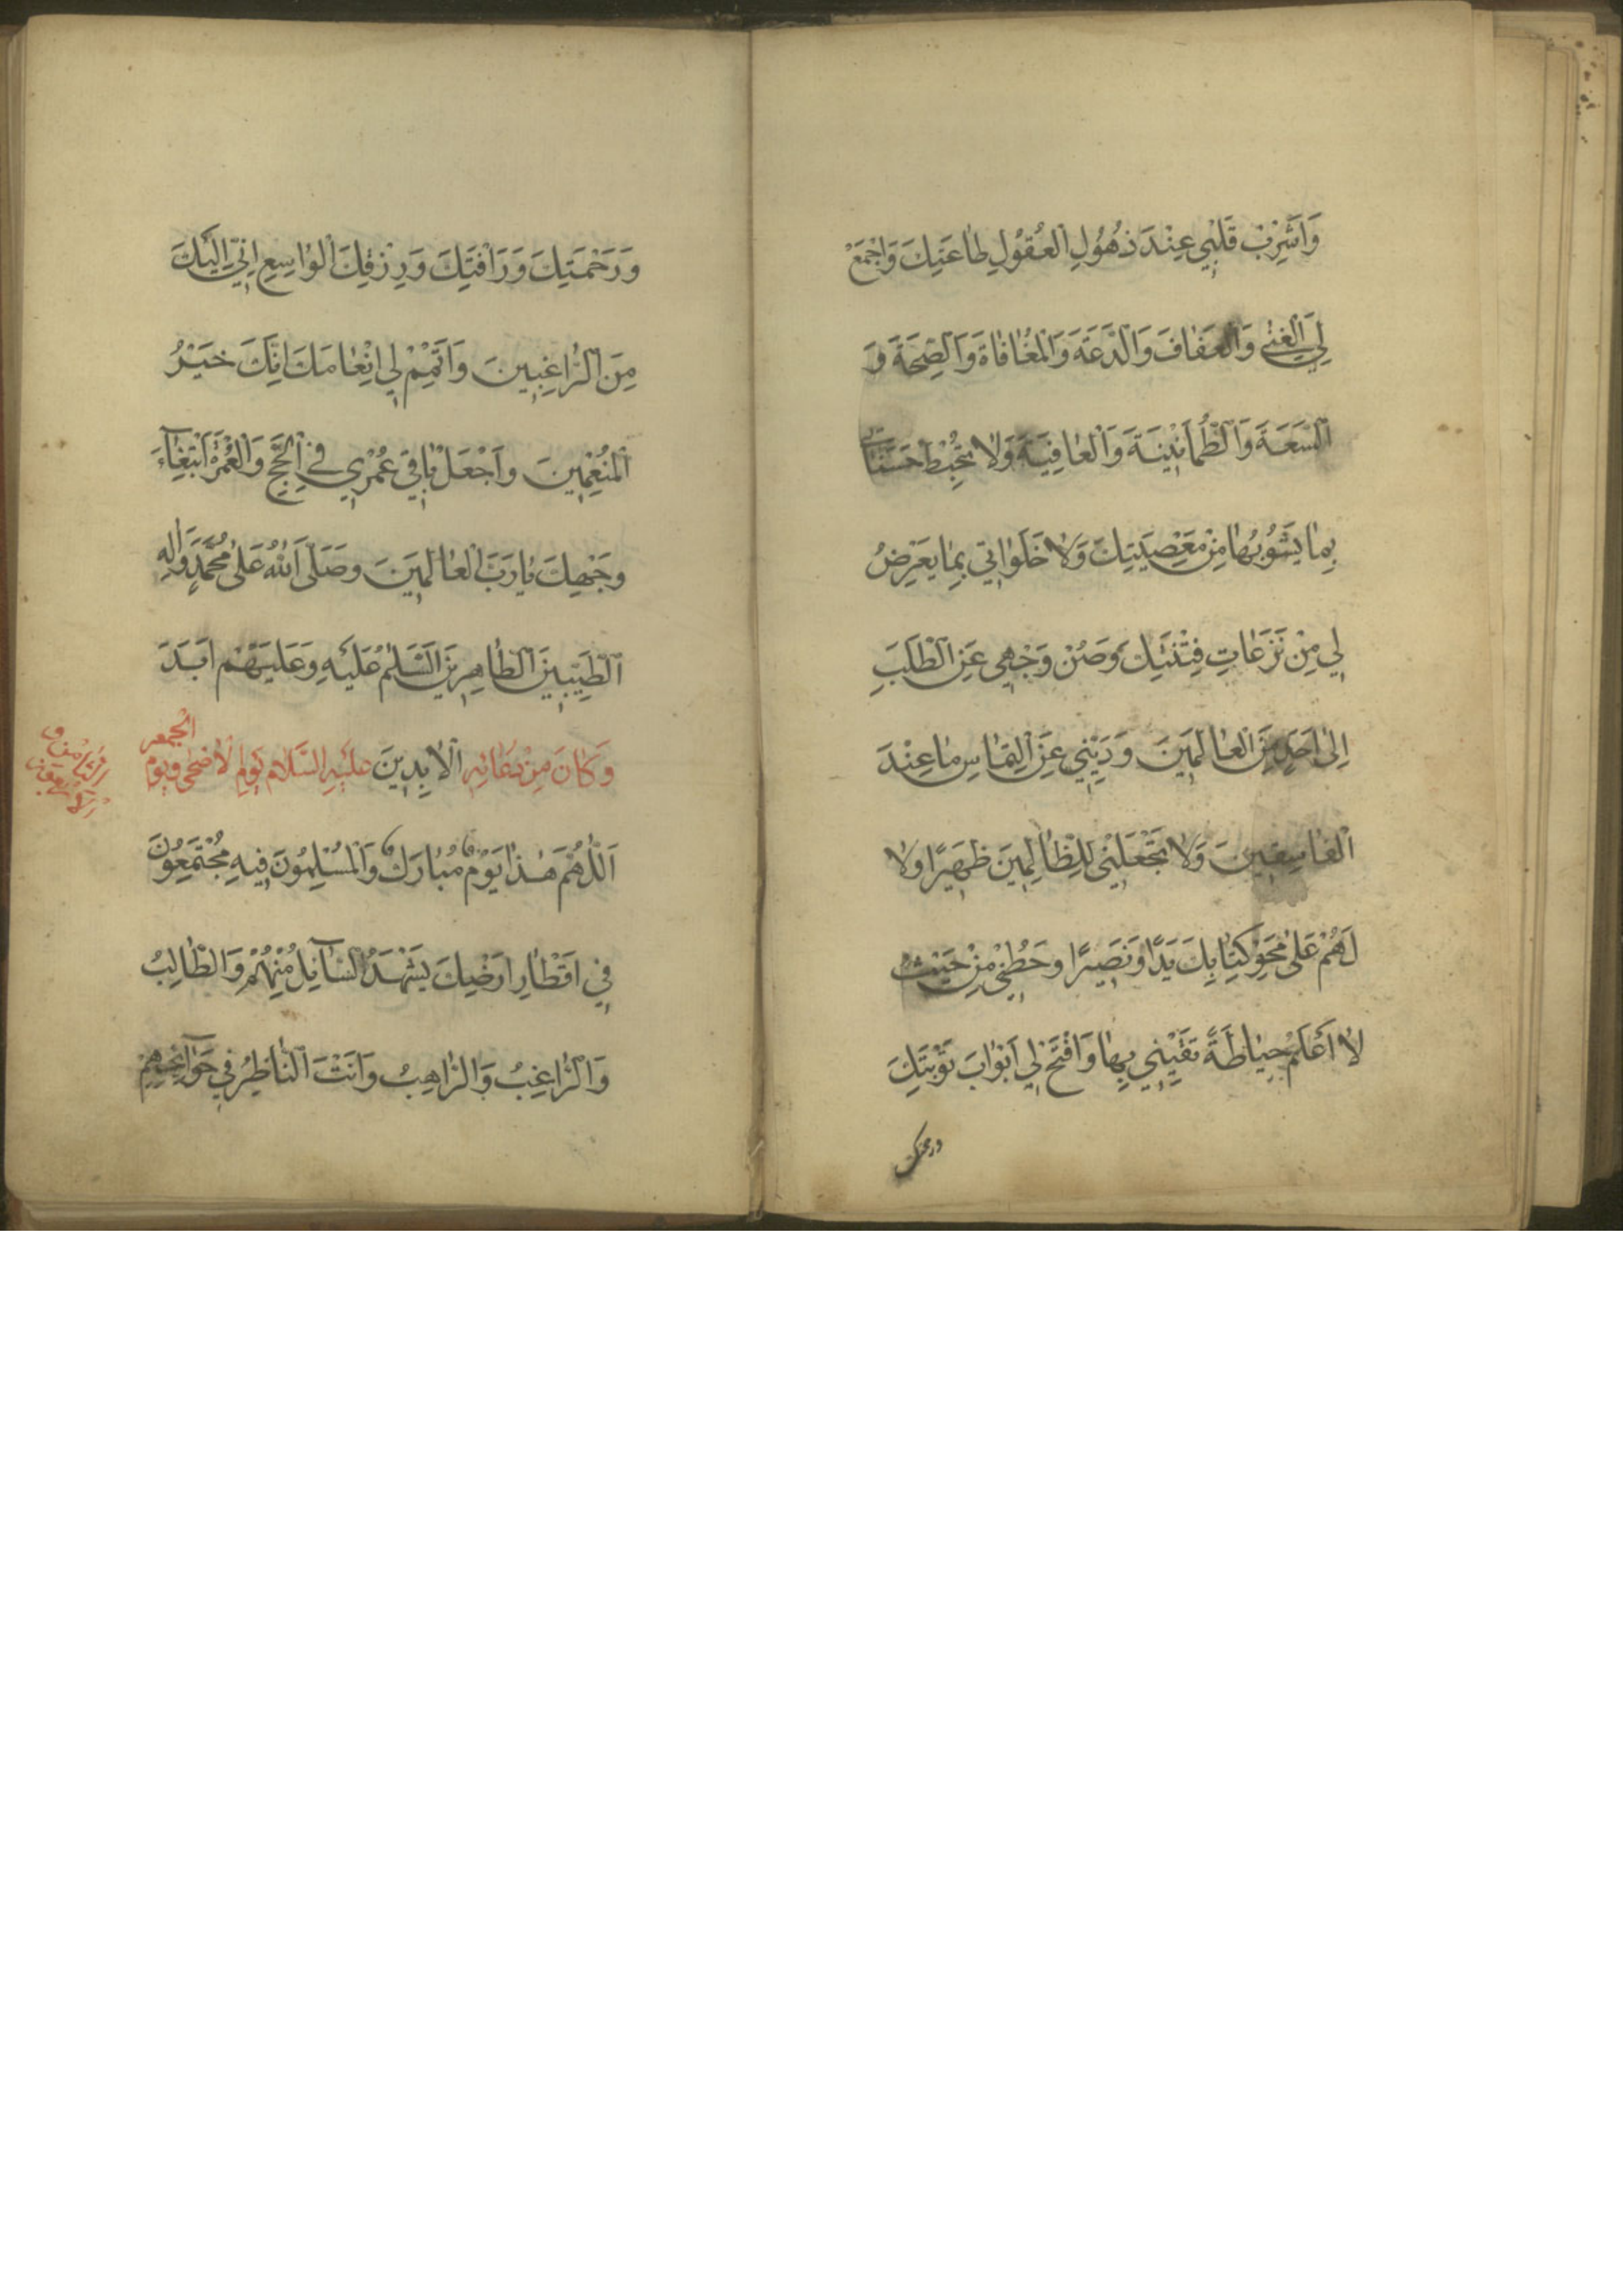 وَاَشْرِبْ قَلْبِي عِنْدَ ذُهُولِ الْعُقُولِ طَاعَتَكَ وَاجْمَعْ
لِيَ الْغِنٰى وَالْعَفَافَ وَالدَّعَةَ وَالْمُعَافَاةَ وَالصِّحَّةَ وَ
السَّعَةَ وَالطُّمَأنِينَةَ وَالْعَافِيَةَ وَلَا تُحْبِطْ حَسَنَاتِي
بِمَا يَشُوبُهَا مِنْ مَعْصِيَتِكَ وَلَا خَلَوَاتِي بِمَا يَعْرِضُ
لِي مِنْ نَزَغَاتِ فِتْنَتِكَ وَصُنْ وَجْهِي عَنِ الطَّلَبِ
اِلٰى اَحَدٍ مِنَ الْعَالَمِينَ وَ دِينِي عَنْ اِلْتِمَاسِ مَا عِنْدَ
الْفَاسِقِينَ وَلَا تَجْعَلْنِي لِلظَّالِمِينَ ظَهِيرًا وَلَا
لَهُمْ عَلٰى مَحْوِ كِتَابِكَ يَدًا وَنَصِيرًا وَحُطْنِي مِنْ حَيْثُ
لَا اَعْلَمُ حِيَاطَةً تَقِينِي بِهَا وَافْتَحْ لِي اَبْوَابَ تَوْبَتِكَ
ورحمتك
وَرَحْمَتِكَ وَرَأفَتِكَ وَرِزْقِكَ الْوَاسِعِ اِنِّي اِلَيْكَ
مِنَ الرَّاغِبِينَ وَاَتْمِمْ لِي اِنْعَامَكَ اِنَّكَ خَيْرُ
الْمُنْعِمِينَ وَاجْعَلْ بَاقِيَ عُمُرِي فِي الْحَجِّ وَالْعُمْرَةِ اِبْتِغَآءَ
وَجْهِكَ يَا رَبَّ الْعَالَمِينَ وَصَلَّى اللّٰهُ عَلٰى مُحَمَّدٍ وَاٰلِهِ
الطَّيِّبِينَ الطَّاهِرِينَ السَّلَامُ عَلَيْهِ وَعَلَيْهِمْ اَبَدَ
وَكَانَ مِنْ دُعَائِهِ الْاٰبِدِينَ عَلَيْهِ السَّلَامُ يَوْمَ الْاَضْحٰى وَيَوْمَ
الْجُمُعَةِ
اَللّٰهُمَّ هٰذَا يَوْمٌ مُبَارَكٌ وَالْمُسْلِمُونَ فِيهِ مُجْتَمِعُونَ
فِي اَقْطَارِ اَرْضِكَ يَشْهَدُ السَّآئِلُ مِنْهُمْ وَالطَّالِبُ
وَالرَّاغِبُ وَالرَّاهِبُ وَاَنْتَ النَّاظِرُ فِي حَوَآئِجِهِمْ